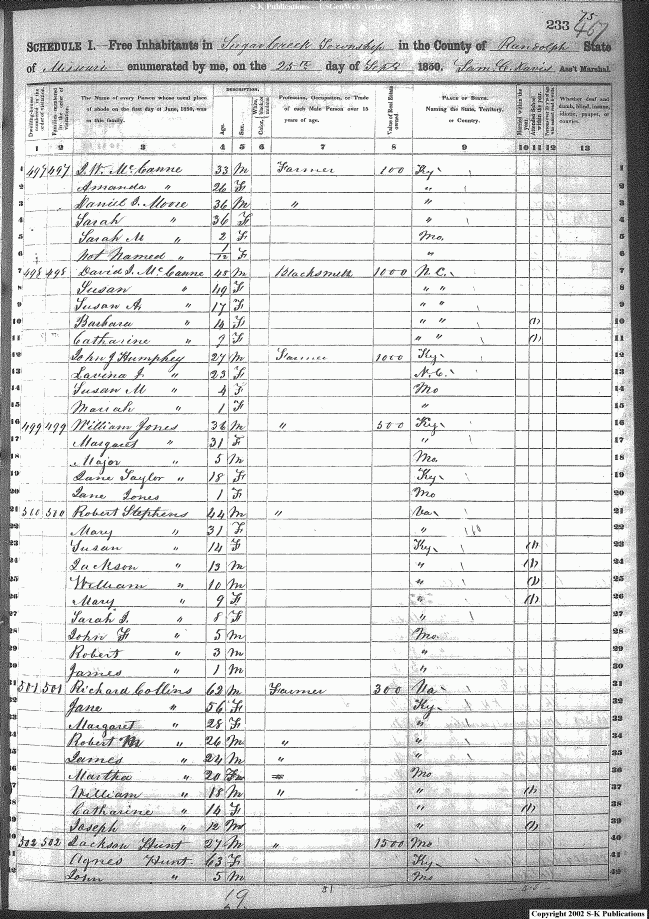 S-K Publications - USGenWeb Archives
233 467
SCHEDULE I.—Free Inhabitants in Sugarcreek Township in the County of Randolph State
of Missouri enumerated by me, on the 25th day of Sept 1850. Saml C. Davis Ass't Marshal.
Dwelling-houses numbered in the order of visitation.
Families numbered in the order of visitation.
The Name of every Person whose usual place of abode on the first day of June, 1850, was in this family.
DESCRIPTION.
Age.
Sex.
Color, White, black, or mulatto.
Profession, Occupation, or Trade of each Male Person over 15 years of age.
Value of Real Estate owned
PLACE OF BIRTH. Naming the State, Territory, or Country.
Married within the year.
Attended School within the year.
Whether deaf and dumb, blind, insane, idiotic, pauper, or convict.
1 2 3 4 5 6 7 8 9 10 11 12 13
1 497 497 J. W. McCanne 33 M Farmer 100 Ky 1
2 Amanda " 26 F " 2
3 Daniel J. Moore 36 M " " 3
4 Sarah " 36 F " 4
5 Sarah M " 2 F Mo. 5
6 Not Named " 1/12 F " 6
7 498 498 David J. McCanne 48 M Blacksmith 1000 N.C. 7
8 Susan " 49 F " " 8
9 Susan A. " 17 F " " 9
10 Barbara " 14 F " " (1) 10
11 Catharine " 9 F " " (1) 11
12 John J Humphey 27 M Farmer 1000 Ky 12
13 Lavina J " 23 F N.C. 13
14 Susan M " 4 F Mo 14
15 Mariah " 1 F " 15
16 499 499 William Jones 36 M " 500 Ky 16
17 Margaret " 31 F " 17
18 Major " 5 M Mo. 18
19 Jane Taylor " 18 F Ky 19
20 Jane Jones 1 F Mo 20
21 500 500 Robert Stephens 44 M " Va 21
22 Mary " 31 F " 22
23 Susan " 14 F Ky (1) 23
24 Jackson " 13 M " (1) 24
25 William " 10 M " (1) 25
26 Mary " 9 F " (1) 26
27 Sarah J. " 8 F " 27
28 John F " 5 M Mo. 28
29 Robert " 3 M " 29
30 James " 1 M " 30
31 501 501 Richard Collins 62 M Farmer 300 Va 31
32 Jane " 56 F Ky 32
33 Margaret " 28 F " 33
34 Robert M " 26 M " " 34
35 James " 24 M " " 35
36 Martha " 20 F Mo 36
37 William " 18 M " " (1) 37
38 Catharine " 14 F " (1) 38
39 Joseph " 12 M " (1) 39
40 502 502 Jackson Hunt 27 M " 1500 Mo 40
41 Agnes Hunt 63 F Ky 41
42 John " 5 M Mo 42
19
Copyright 2002 S-K Publications